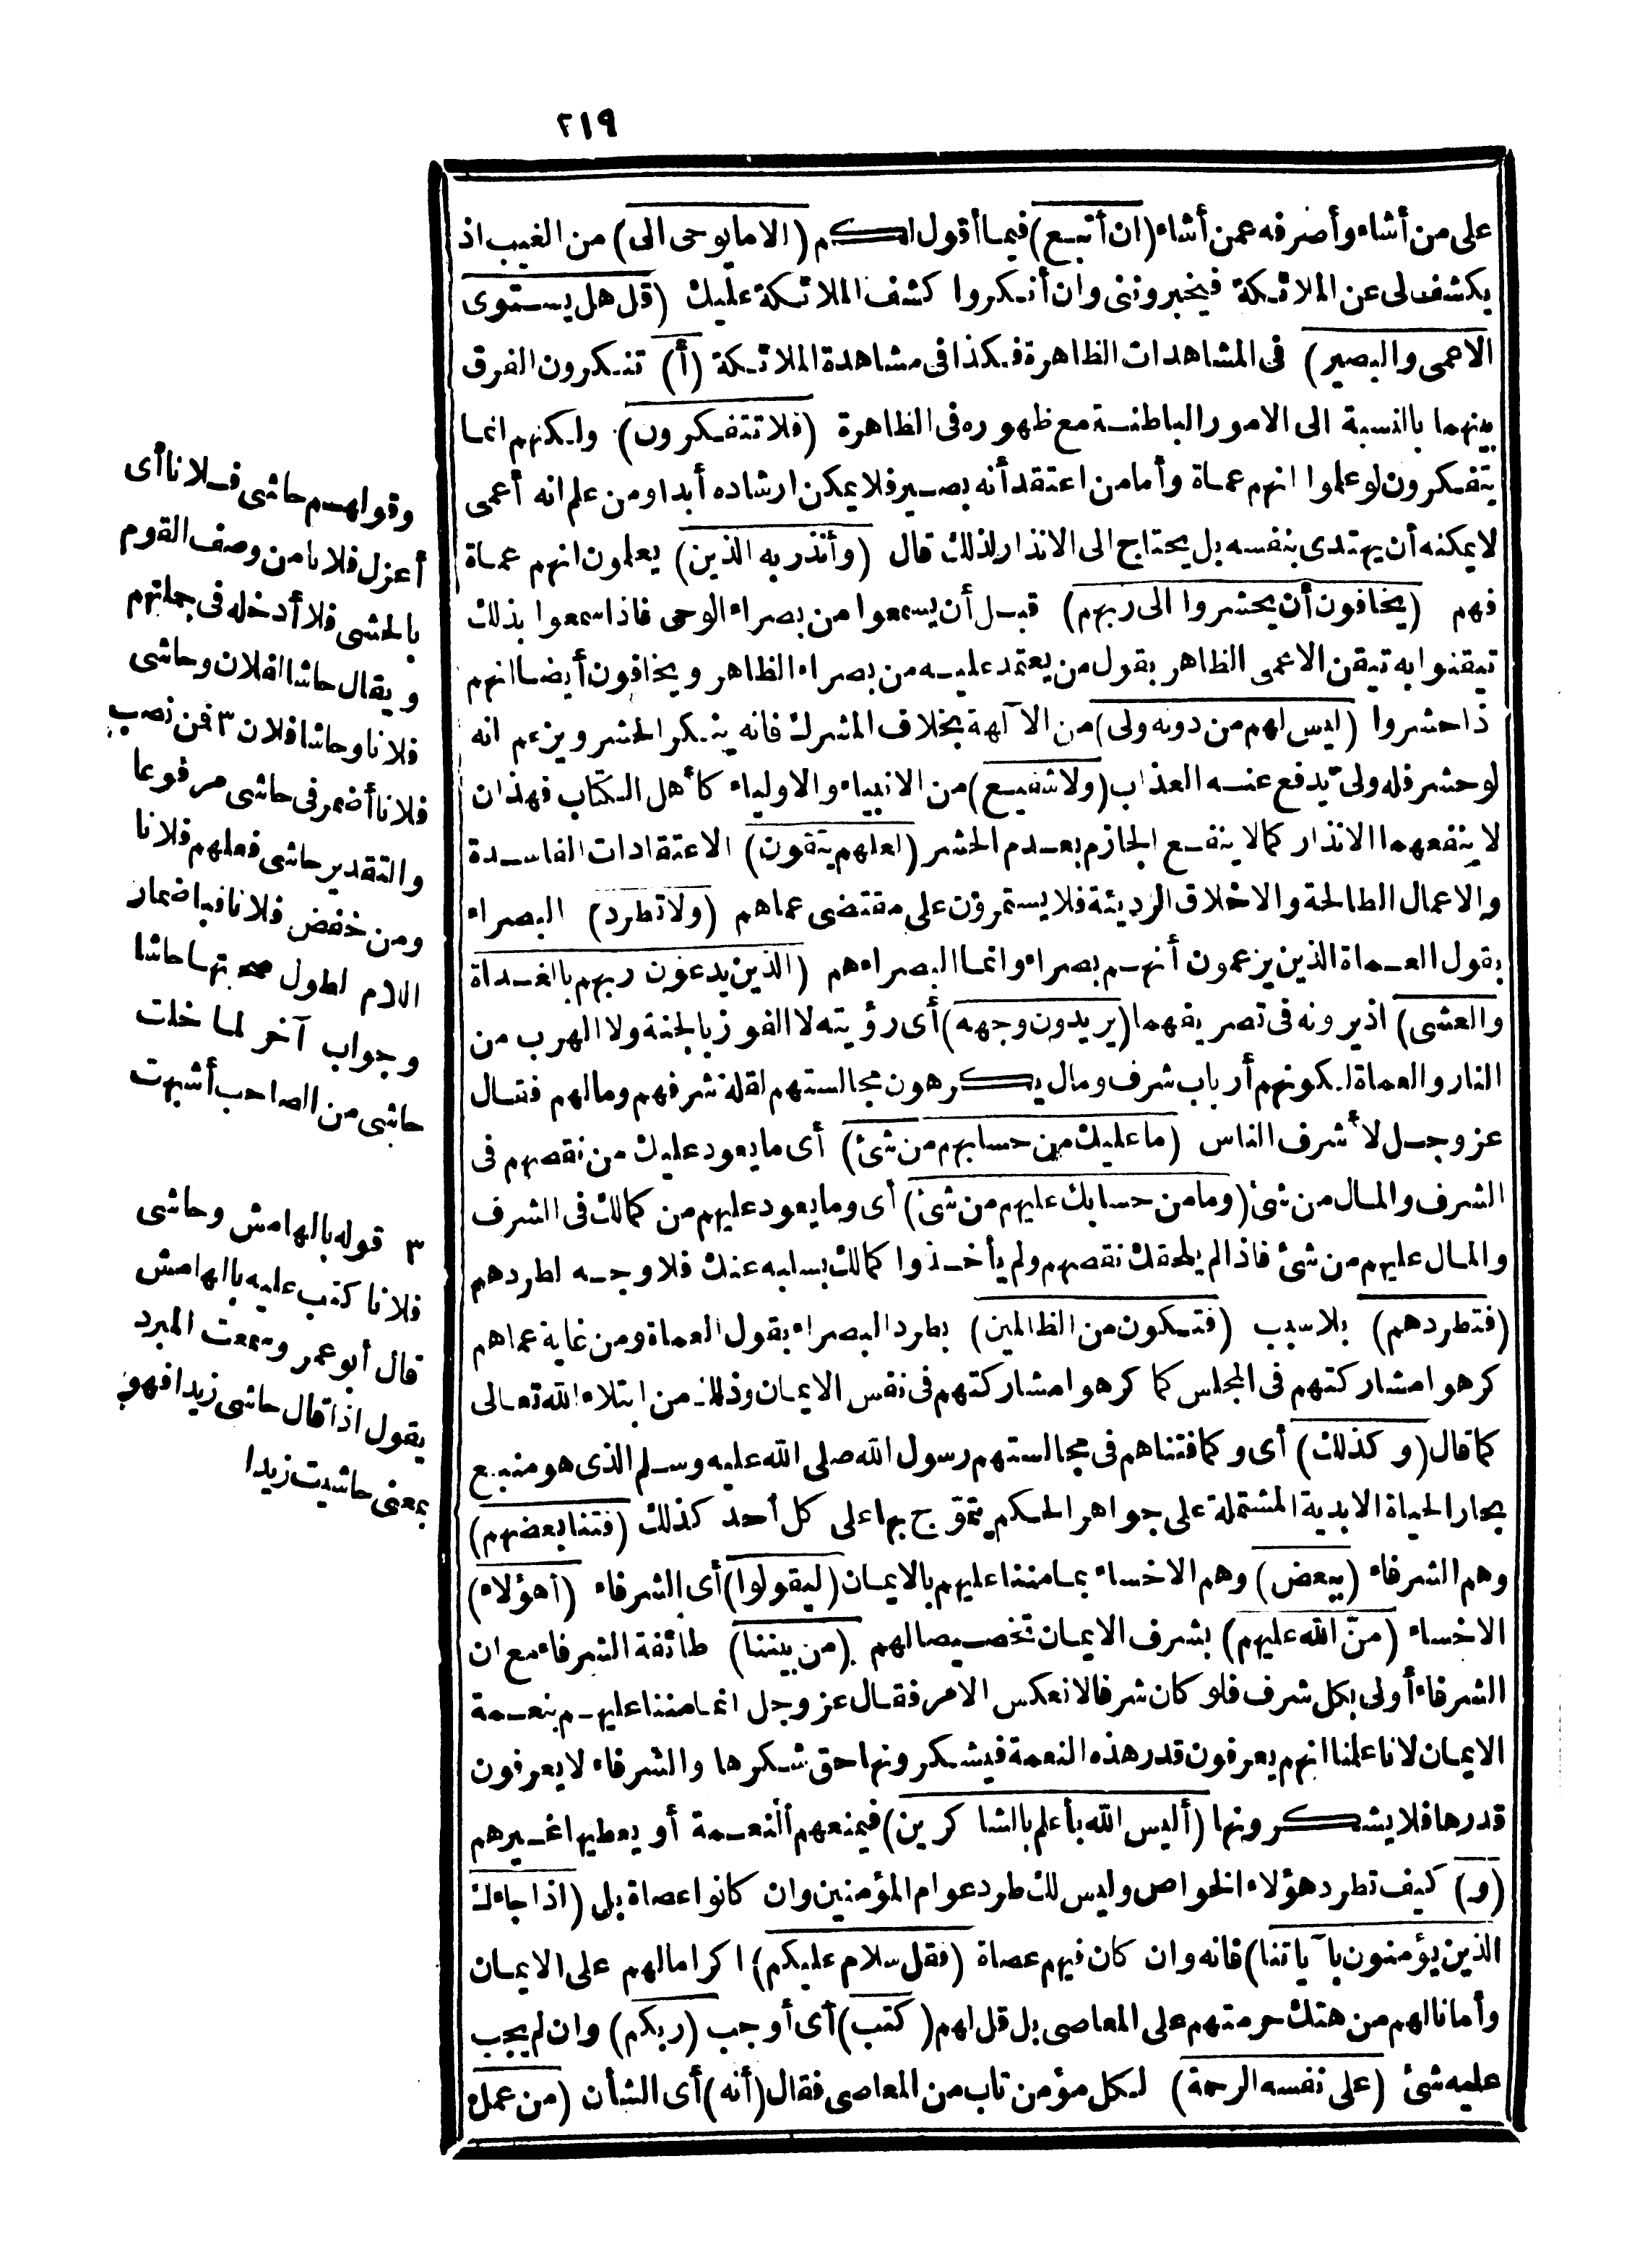 ٢١٩
على من أشاء وأصرفه عمن أشاء (ان أتبع) فيما أقول لكم (الا ما يوحى الى) من الغيب اذ
يكشف لى عن الملائكة فيخبروننى وان أنكروا كشف الملائكة عليك (قل هل يستوى
الاعمى والبصير) فى المشاهدات الظاهرة فكذا فى مشاهدة الملائكة (أ) تنكرون الفرق
بينهما بالنسبة الى الامور الباطنة مع ظهوره فى الظاهرة (فلا تتفكرون) ولكنهم انما
يتفكرون لو علموا انهم عماة وأما من اعتقد أنه بصير فلا يمكن ارشاده أبدا ومن علم انه أعمى
لا يمكنه أن يهتدى بنفسه بل يحتاج الى الانذار لذلك قال (وأنذر به الذين) يعلمون انهم عماة
فهم (يخافون أن يحشروا الى ربهم) قبل أن يسمعوا من بصراء الوحى فاذا سمعوا بذلك
تيقنوا به تيقن الاعمى الظاهر بقول من يعتمد عليه من بصراء الظاهر ويخافون أيضا انهم
ذا حشروا (ليس لهم من دونه ولى) من الآلهة بخلاف المشرك فانه ينكر الحشر ويزعم انه
لو حشر فله ولىّ يدفع عنه العذاب (ولا شفيع) من الانبياء والاولياء كأهل الكتاب فهذان
لا ينفعهما الانذار كما لا ينفع الجازم بعدم الحشر (لعلهم يتقون) الاعتقادات الفاسدة
والاعمال الطالحة والاخلاق الرديئة فلا يستمرون على مقتضى عماهم (ولا تطرد) البصراء
بقول العماة الذين يزعمون أنهم بصراء وانما البصراء هم (الذين يدعون ربهم بالغداة
والعشى) اذ يرونه فى تصريفهما (يريدون وجهه) أى رؤيته لا الفوز بالجنة ولا الهرب من
النار والعماة لكونهم أرباب شرف ومال يكرهون مجالستهم لقلة شرفهم ومالهم فقال
عز وجل لأشرف الناس (ما عليك من حسابهم من شئ) أى ما يعود عليك من نقصهم فى
الشرف والمال من شئ (وما من حسابك عليهم من شئ) أى وما يعود عليهم من كمالك فى الشرف
والمال عليهم من شئ فاذا لم يلحقك نقصهم ولم يأخذوا كمالك بسلبه عنك فلا وجه لطردهم
(فتطردهم) بلا سبب (فتكون من الظالمين) بطرد البصراء بقول العماة ومن غاية عماهم
كرهوا مشاركتهم فى المجلس كما كرهوا مشاركتهم فى نفس الايمان وذلك من ابتلاء الله تعالى
كما قال (وكذلك) أى وكما فتناهم فى مجالستهم رسول الله صلى الله عليه وسلم الذى هو منبع
بحار الحياة الابدية المشتملة على جواهر الحكم يتموّج بها على كل أحد كذلك (فتنا بعضهم)
وهم الشرفاء (ببعض) وهم الاخساء بما مننا عليهم بالايمان (ليقولوا) أى الشرفاء (أهؤلاء)
الاخساء (منّ الله عليهم) بشرف الايمان تخصيصا لهم (من بيننا) طائفة الشرفاء مع ان
الشرفاء أولى بكل شرف فلو كان شرفا لانعكس الامر فقال عز وجل انما مننا عليهم بنعمة
الايمان لانا علمنا انهم يعرفون قدر هذه النعمة فيشكرونها حق شكرها والشرفاء لا يعرفون
قدرها فلا يشكرونها (أليس الله بأعلم بالشاكرين) فيمنعهم النعمة أو يعطيها غيرهم
(و) كيف تطرد هؤلاء الخواص وليس لك طرد عوام المؤمنين وان كانوا عصاة بل (اذا جاءك
الذين يؤمنون بآياتنا) فانه وان كان فيهم عصاة (فقل سلام عليكم) اكراما لهم على الايمان
وأمانا لهم من هتك حرمتهم على المعاصى بل قل لهم (كتب) أى أوجب (ربكم) وان لم يجب
عليه شئ (على نفسه الرحمة) لكل مؤمن تاب من المعاصى فقال (أنه) أى الشأن (من عمل
وقولهم حاشى فلانا أى
أعزل فلانا من وصف القوم
بالحشى فلا أدخله فى جملتهم
ويقال حاشا لفلان وحاشى
فلانا وحاشا فلان ٣ فمن نصب
فلانا أضمر فى حاشى مرفوعا
والتقدير حاشى فعلهم فلانا
ومن خفض فلانا فباضمار
اللام لطول صحبتها حاشا
وجواب آخر لما خلت
حاشى من الصاحب أشبهت
٣ قوله بالهامش وحاشى
فلانا كتب عليه بالهامش
قال أبو عمر وسمعت المبرد
يقول اذا قال حاشى زيدا فهو
بمعنى حاشيت زيدا